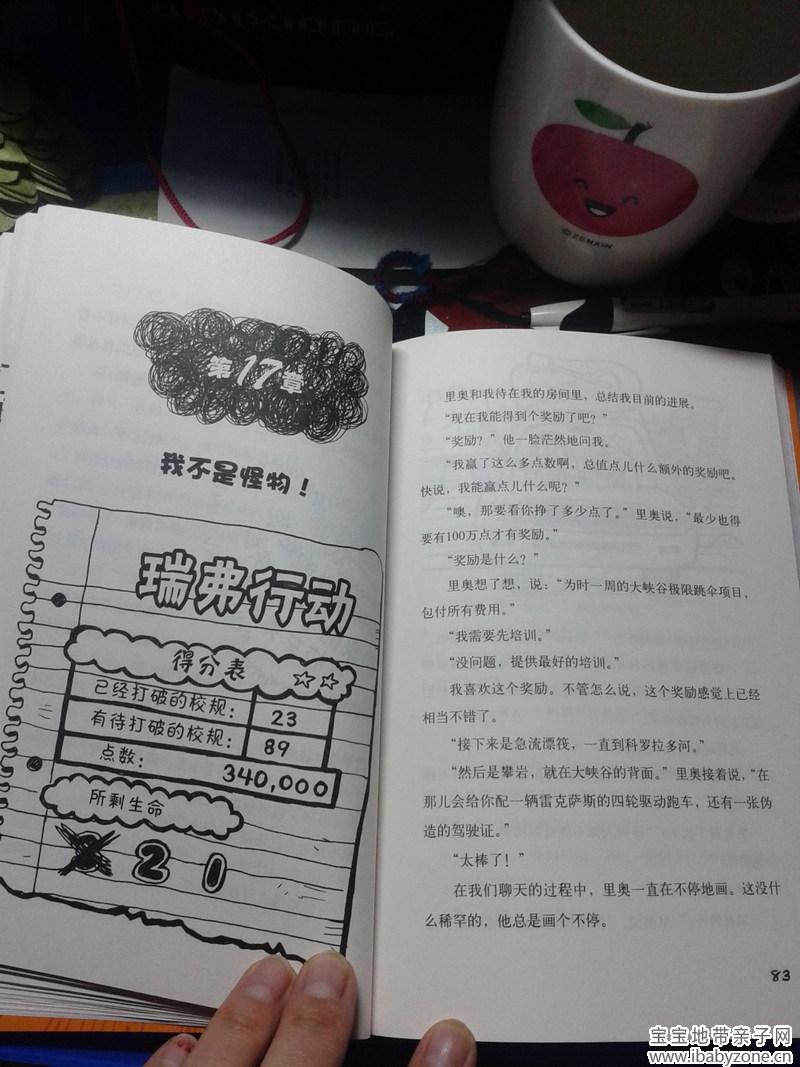 ©ZENXIN
第17章
我不是怪物！
瑞弗行动
得分表
已经打破的校规： 23
有待打破的校规： 89
点数： 340,000
所剩生命
3 2 1
里奥和我待在我的房间里，总结我目前的进展。
“现在我能得到个奖励了吧？”
“奖励？”他一脸茫然地问我。
“我赢了这么多点数啊，总值点儿什么额外的奖励吧。
快说，我能赢点儿什么呢？”
“噢，那要看你挣了多少点了。”里奥说，“最少也得
要有100万点才有奖励。”
“奖励是什么？”
里奥想了想，说：“为时一周的大峡谷极限跳伞项目，
包付所有费用。”
“我需要先培训。”
“没问题，提供最好的培训。”
我喜欢这个奖励。不管怎么说，这个奖励感觉上已经
相当不错了。
“接下来是急流漂筏，一直到科罗拉多河。”
“然后是攀岩，就在大峡谷的背面。”里奥接着说，“在
那儿会给你配一辆雷克萨斯的四轮驱动跑车，还有一张伪
造的驾驶证。”
“太棒了！”
在我们聊天的过程中，里奥一直在不停地画。这没什
么稀罕的，他总是画个不停。
83
宝宝地带亲子网
www.ibabyzone.cn